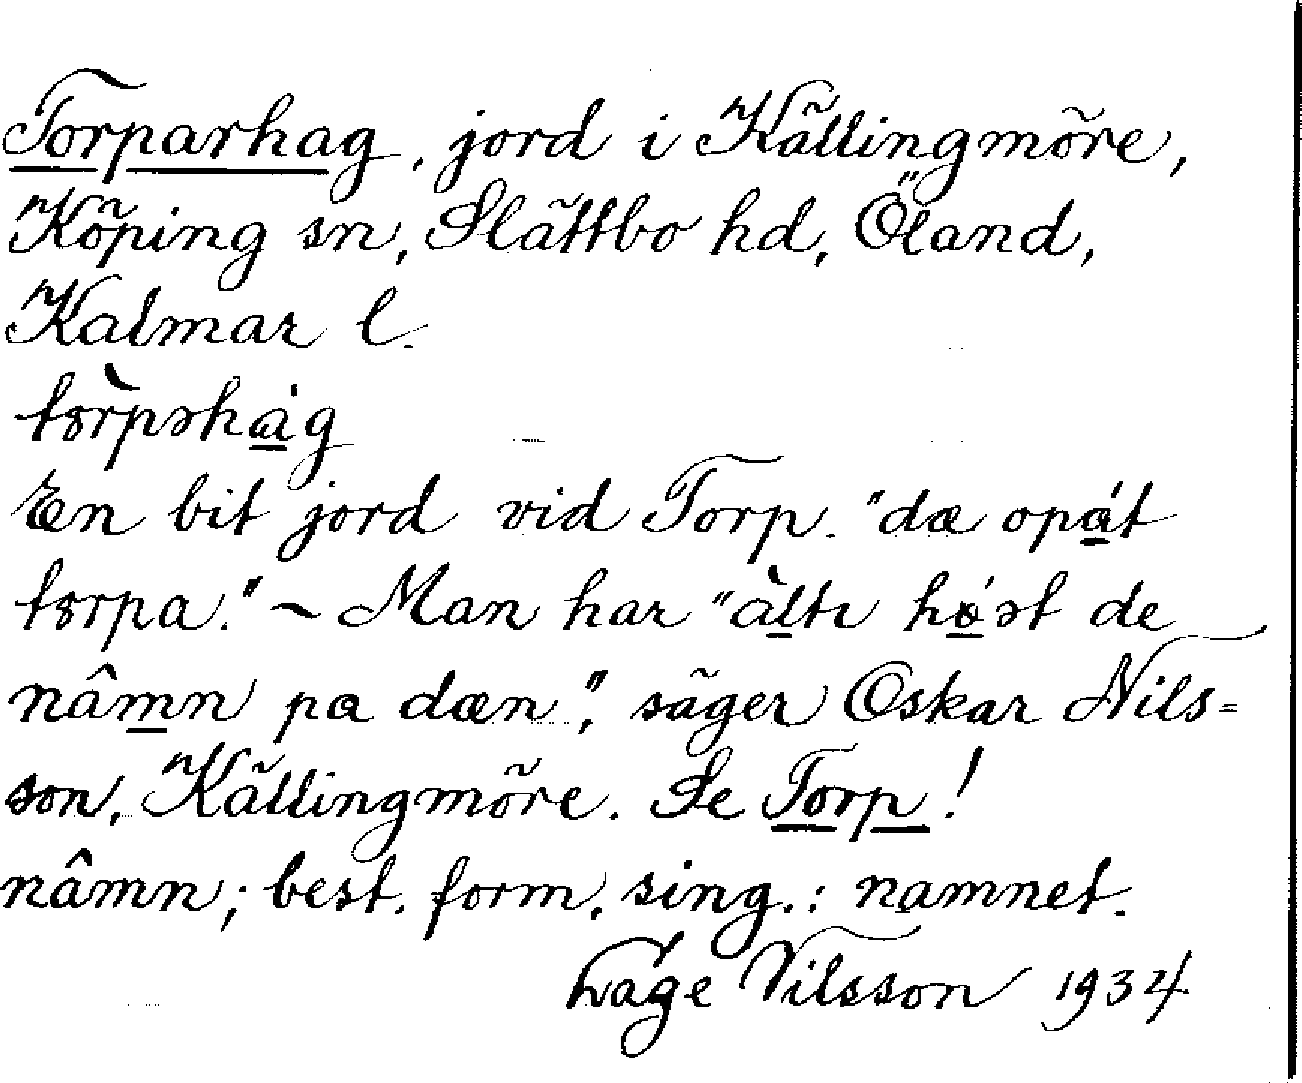 Torparhag, jord i Källingmöre,
Köping sn, Slättbo hd, Öland,
Kalmar l.
tɔ̀rpərhág
En bit jord vid Torp. "dæ opát
tɔrpa." ~ Man har "àltɩ hǿst de
nâmn pɑ dæn", säger Oskar Nils=
son, Källingmöre. Se Torp!
nâmn; best. form. sing.: namnet.
Låge Nilsson 1934